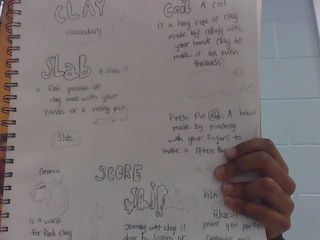 CLAY
vocabulary
Slab A slab is
a flat peice of
clay made with your
hands or a rolling pin
Slab
Coil A coil
is a long rope of clay
made by rolling with
your hands clay to
make it an even
thickness
Pinch Pot A bowl
made by pinching
with your fingers to
make a sphere
Ceramic
is a world
for fired clay
SCORE
Slip
joining wet clay
kiln